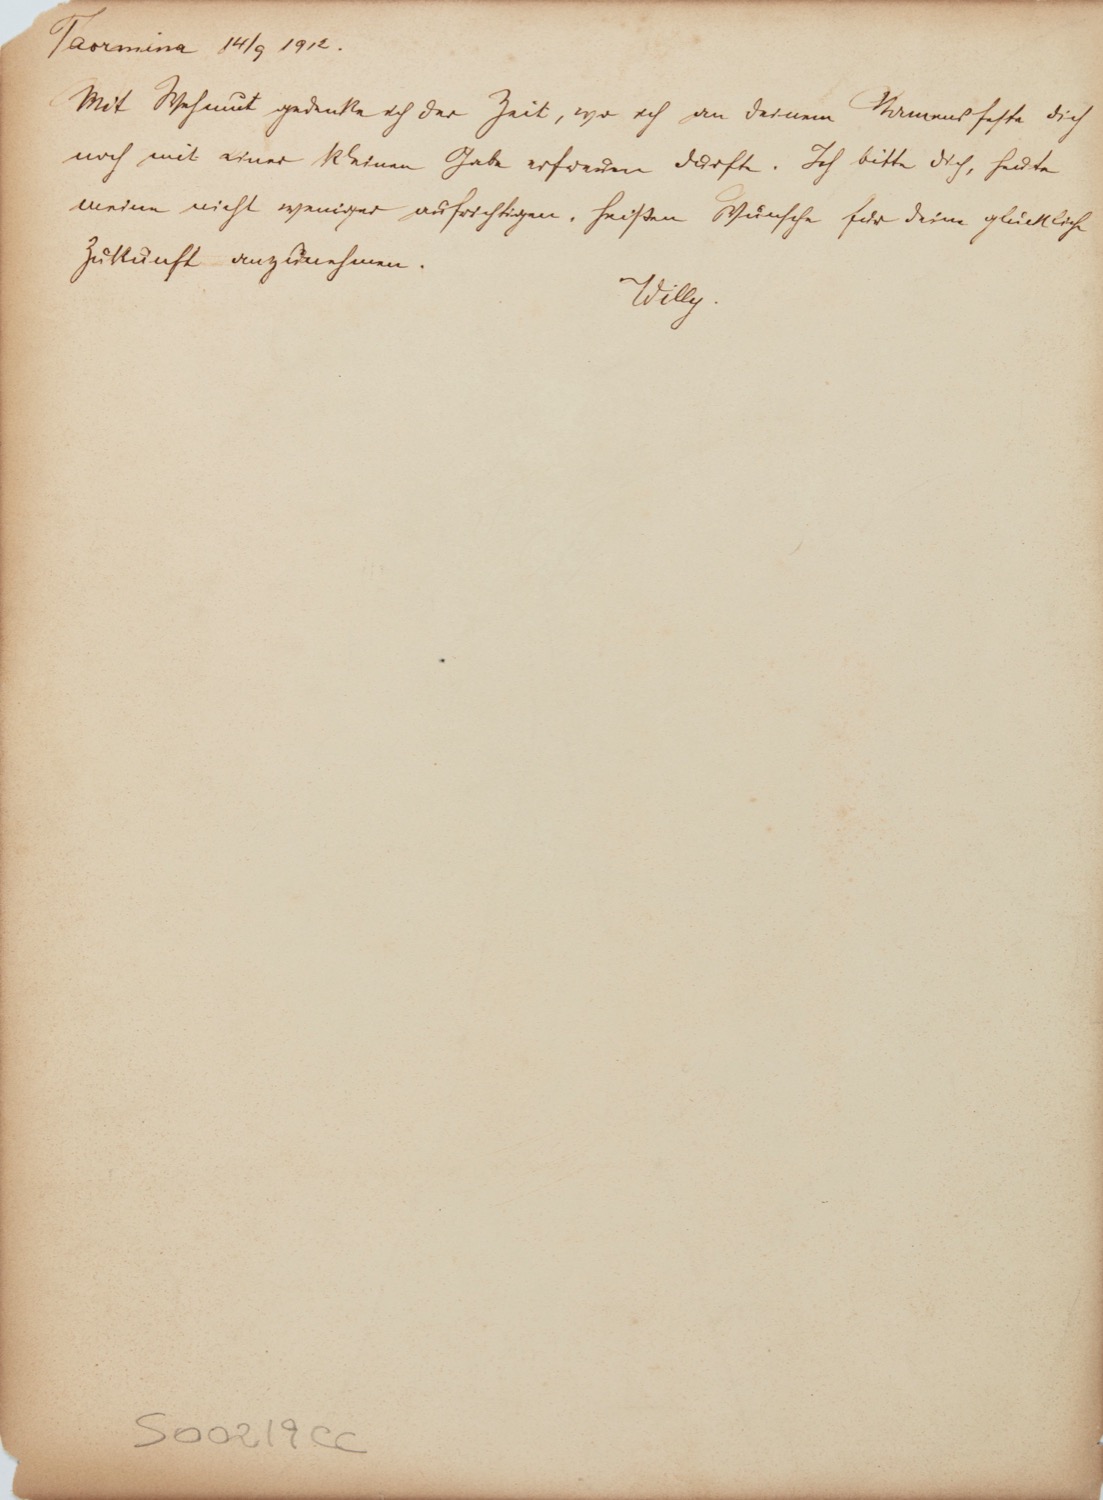 Taormina 14/9 1912.
Mit Wehmut gedenke ich der Zeit, wo ich an deinem Namensfeste dich
noch mit einer kleinen Gabe erfreuen durfte. Ich bitte dich, heute
meine nicht weniger aufrichtigen, heißen Wünsche für deine glückliche
Zukunft anzunehmen.
Willy.
S00219CC